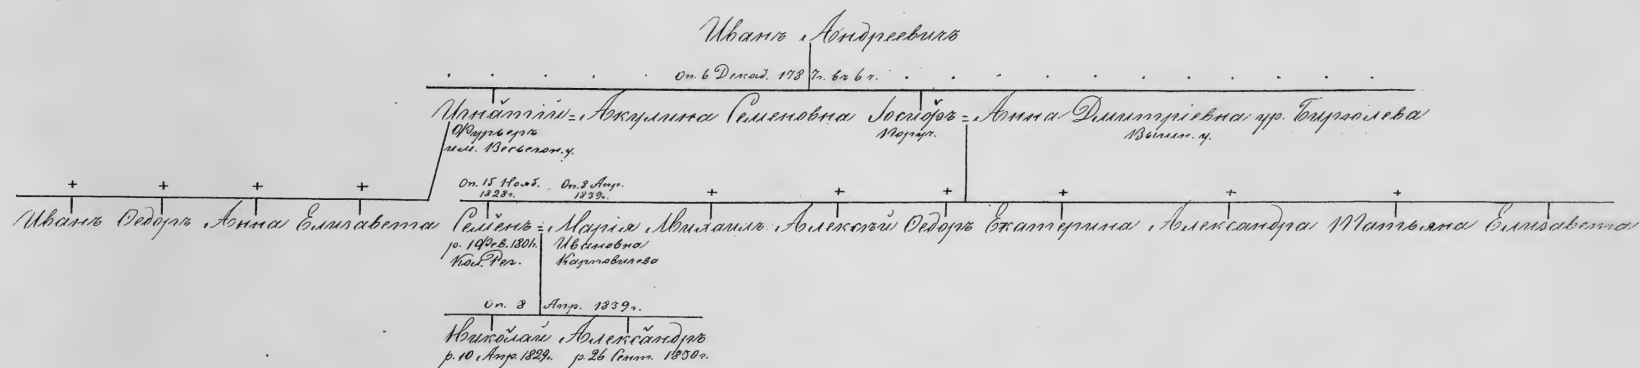 Иванъ Андреевичъ
Оп. 6 Декаб. 1787г. въ 6 ч.
Игнатій = Акулина Семеновна Іосифъ = Анна Дмитріевна ур. Бирюлева
Фурьеръ Поруч. Вышн. у.
им. Весьегон. у.
Оп. 15 Нояб. 1828г. Оп. 8 Апр. 1839г.
Иванъ Ѳедоръ Анна Елизавета Семёнъ = Марія Михаилъ Алексѣй Ѳедоръ Екатерина Александра Татьяна Елизавета
р. 1 Фев. 1801г. Ивановна
Кол. Рег. Карповичева
Оп. 8 Апр. 1839г.
Николай Александръ
р. 10 Апр. 1829г. р. 26 Сент. 1830г.